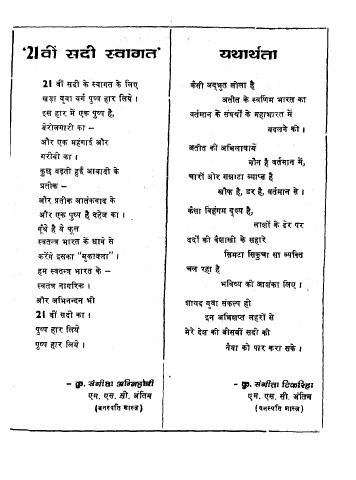 '21वीं सदी स्वागत'
21 वीं सदी के स्वागत के लिए
खड़ा युवा वर्ग पुष्प हार लिये ।
इस हार में एक पुष्प है,
बेरोजगारी का –
और एक महंगाई और
गरीबी का ।
कुछ बढ़ती हुई आबादी के
प्रतीक –
और प्रतीक आतंकवाद के
और एक पुष्प है दहेज का ।
गूंथे है ये फूल
स्वतन्त्र भारत के धागे से
करेंगे इसका "मुकाबला" ।
हम स्वतन्त्र भारत के –
स्वतंत्र नागरिक ।
और अभिनन्दन भी
21 वीं सदी का ।
पुष्प हार लिये
पुष्प हार लिये ।
– कु. संगीता अग्निहोत्री
एम. एस. सी. अंतिम
(वनस्पति शास्त्र)
यथार्थता
कैसी अद्भुत लीला है
अतीत के स्वर्णिम भारत का
वर्तमान के संघर्षों के महाभारत में
बदलने की ।
अतीत की अभिलाषायें
मौन है वर्तमान में,
चारों ओर सन्नाटा व्याप्त है
खौफ है, डर है, वर्तमान से ।
कैसा विहंगम दृश्य है,
लाशों के ढेर पर
दर्दों की बैशाखी के सहारे
सिमटा सिकुचा सा व्यक्ति
चल रहा है
भविष्य की आशंका लिए ।
शायद युवा संकल्प ही
इन अभिशप्त लहरों से
मेरे देश की बीसवीं सदी की
नैया को पार करा सके ।
– कु. संगीता टिकरिहा
एम. एस. सी. अंतिम
(वनस्पति शास्त्र)